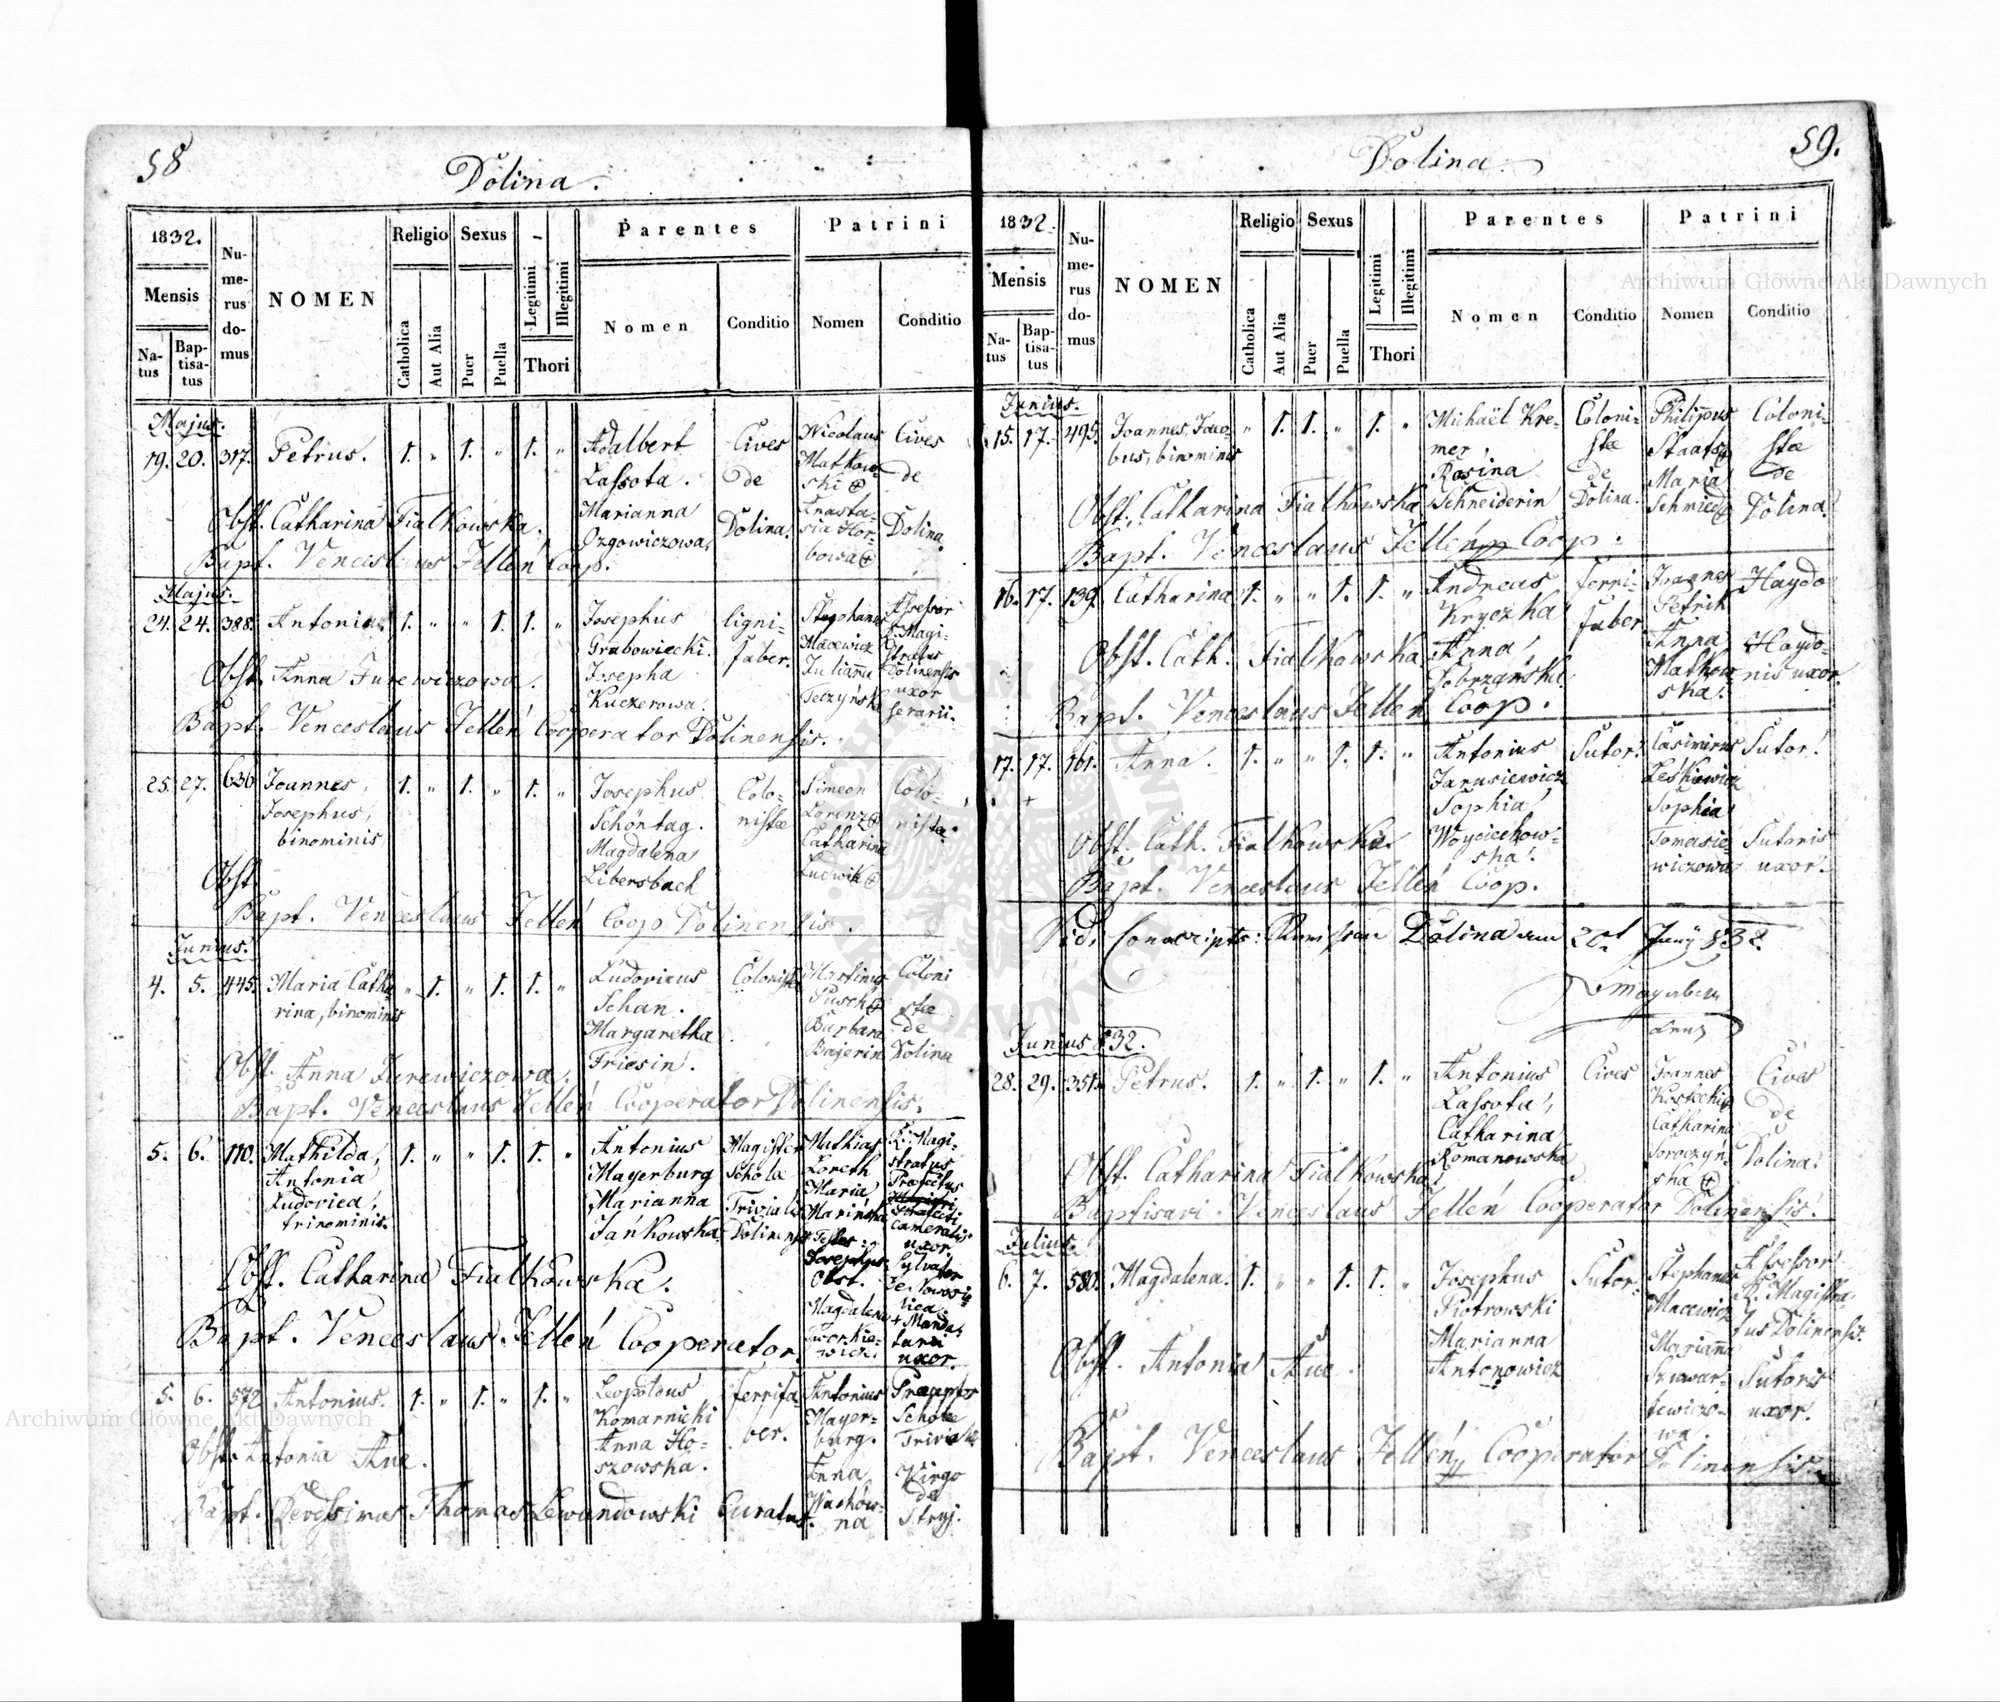 58
Dolina.
1832.
Mensis
Natus
Baptisatus
Numerus domus
NOMEN
Religio
Catholica
Aut Alia
Sexus
Puer
Puella
Legitimi
Illegitimi
Thori
Parentes
Nomen
Conditio
Patrini
Nomen
Conditio
Majus.
19. 20. 317. Petrus. 1. „ 1. „ 1. „
Adalbert
Lassota.
Marianna
Ozgowiczowa.
Cives
de
Dolina.
Nicolaus
Matkow-
ski
Anasta-
sia Hor-
bowa
Cives
de
Dolina.
Obst. Catharina Fialkowska.
Bapt. Venceslaus Jelleń Coop.
Majus.
24. 24. 388. Antonia. 1. „ „ 1. 1. „
Josephus
Grabowiecki.
Josepha
Kuczerowa.
ligni-
faber.
Stephanus
Macewicz
Julianna
Teczyńska
Assessor
R. Magi-
stratus
Dolinensis
uxor
serarii.
Obst. Anna Jurewiczowa.
Bapt. Venceslaus Jelleń Cooperator Dolinensis.
25. 27. 630 Joannes, 1. „ 1. „ 1. „
Josephus,
binominis
Josephus
Schöntag.
Magdalena
Libersbach
Colo-
nistæ
Simeon
Lorenz
Catharina
Ludwik
Colo-
nista.
Obst.
Bapt. Venceslaus Jelleń Coop Dolinensis.
Junius.
4. 5. 445. Maria Catha- „ 1. „ 1. 1. „
rina, binominis
Ludovicus
Schan.
Margaretha
Friesin.
Colonistæ
Martinus
Pusch
Barbara
Bajerin
Coloni
stæ
de
Dolina
Obst. Anna Jurewiczowa.
Bapt. Venceslaus Jelleń Cooperator Dolinensis.
5. 6. 110. Mathilda, 1. „ „ 1. 1. „
Antonia
Ludovica,
trinominis.
Antonius
Mayerburg
Marianna
Jańkowska
Magister
Scholæ
Trivialis
Dolinensis
Mathias
Loreth
Maria
Marińska
Testes:
Josephus
Obst.
Magdalena
Tworkie-
wicz.
R. Magi-
stratus
Præfectus
Præfecti
cameralis
uxor
Sylvater
de Nowosie-
lica
+ Manda-
tarii
uxor.
Obst. Catharina Fialkowska.
Bapt. Venceslaus Jelleń Cooperator.
5. 6. 572 Antonius. 1. „ 1. „ 1. „
Leopoldus
Komarnicki
Anna Ho-
szowska.
ferrifa-
ber.
Antonius
Mayer-
burg.
Anna
Wachów-
na
Præceptor
Scholæ
Trivialis
Virgo
de
Stryj.
Obst. Antonia Aue.
Bapt. Revdssimus Thomas Lewandowski Curatus.
59.
Dolina.
1832.
Mensis
Natus
Baptisatus
Numerus domus
NOMEN
Religio
Catholica
Aut Alia
Sexus
Puer
Puella
Legitimi
Illegitimi
Thori
Parentes
Nomen
Conditio
Patrini
Nomen
Conditio
Junius.
15. 17. 495. Joannes, Jaco- „ 1. 1. „ 1. „
bus, binominis
Michaël Kre-
mer,
Rosina
Schneiderin
Coloni-
stæ
de
Dolina.
Philippus
Staats
Maria
Schmied
Coloni-
stæ
de
Dolina.
Obst. Catharina Fialkowska
Bapt. Venceslaus Jelleń Coop.
16. 17. 139. Catharina 1. „ „ 1. 1. „
Andreas
Kryczka
Anna
Dobrzańska.
ferri-
faber
Joannes
Petrik
Anna
Matkow-
ska.
Haydo
Haydo-
nis uxor.
Obst. Cath. Fialkowska
Bapt. Venceslaus Jelleń Coop.
17. 17. 161. Anna. 1. „ „ 1. 1. „
Antonius
Jarusiewicz
Sophia
Woyciechow-
ska.
Sutor.
Casimirus
Leśkiewicz
Sophia
Tomasie-
wiczowa
Sutor.
Sutoris
uxor.
Obst. Cath. Fialkowska.
Bapt. Venceslaus Jelleń Coop.
Vidi Dolina
Junius 832.
28. 29. 351. Petrus. 1. „ 1. „ 1. „
Antonius
Lassota,
Catharina
Romanowska
Cives
Joannes
Kostecki
Catharina
Soroczyń-
ska
Cives
de
Dolina.
Obst. Catharina Fialkowska.
Baptisavi Venceslaus Jelleń Cooperator Dolinensis.
Julius.
6. 7. 580. Magdalena. 1. „ „ 1. 1. „
Josephus
Piotrowski
Marianna
Antonowicz
Sutor.
Stephanus
Macewicz
Marianna
Szwar-
cewiczo-
wa.
Assessor
R. Magistra-
tus Dolinensis.
Sutoris
uxor.
Obst. Antonia Aue.
Bapt. Venceslaus Jelleń Cooperator Dolinensis.
Archiwum Główne Akt Dawnych
Archiwum Główne Akt Dawnych
ARCHIWUM GŁÓWNE AKT DAWNYCH